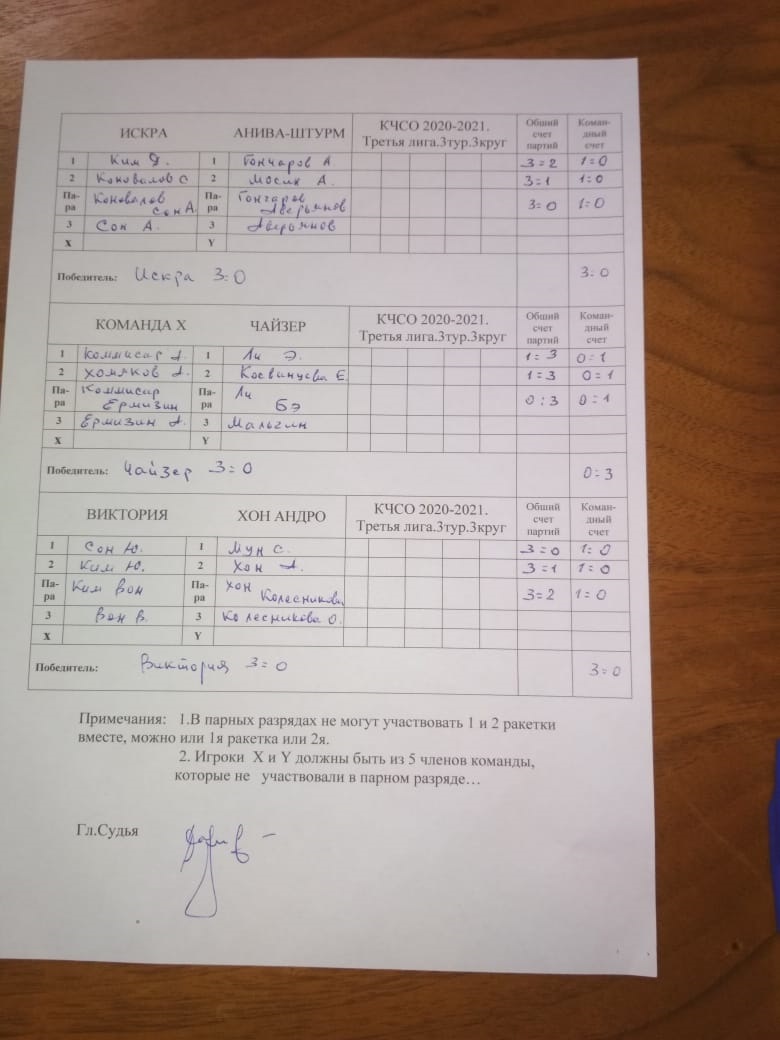 ИСКРА АНИВА-ШТУРМ КЧСО 2020-2021. Третья лига.3тур.3круг Общий счет партий Коман-дный счет
1 Ким Я. 1 Гончаров А 3=2 1=0
2 Коновалов С 2 Мосин А. 3=1 1=0
Па-ра Коновалов Сон А. Па-ра Гончаров Аверьянов 3=0 1=0
3 Сон А. 3 Аверьянов
X Y
Победитель: Искра 3:0 3:0
КОМАНДА Х ЧАЙЗЕР КЧСО 2020-2021. Третья лига.3тур.3круг Общий счет партий Коман-дный счет
1 Коммисар А. 1 Ли Э. 1=3 0=1
2 Хомяков А. 2 Косванцева Е 1=3 0=1
Па-ра Коммисар Ермизин Па-ра Ли Бэ 0:3 0=1
3 Ермизин А. 3 Мальгин
X Y
Победитель: Чайзер 3=0 0=3
ВИКТОРИЯ ХОН АНДРО КЧСО 2020-2021. Третья лига.3тур.3круг Общий счет партий Коман-дный счет
1 Сон Ю. 1 Мун С. 3=0 1=0
2 Ким Ю. 2 Хон А. 3=1 1=0
Па-ра Ким Вон Па-ра Хон Колесникова 3=2 1=0
3 Вон В. 3 Колесникова О.
X Y
Победитель: Виктория 3=0 3=0
Примечания: 1.В парных разрядах не могут участвовать 1 и 2 ракетки
вместе, можно или 1я ракетка или 2я.
2. Игроки X и Y должны быть из 5 членов команды,
которые не участвовали в парном разряде…
Гл.Судья